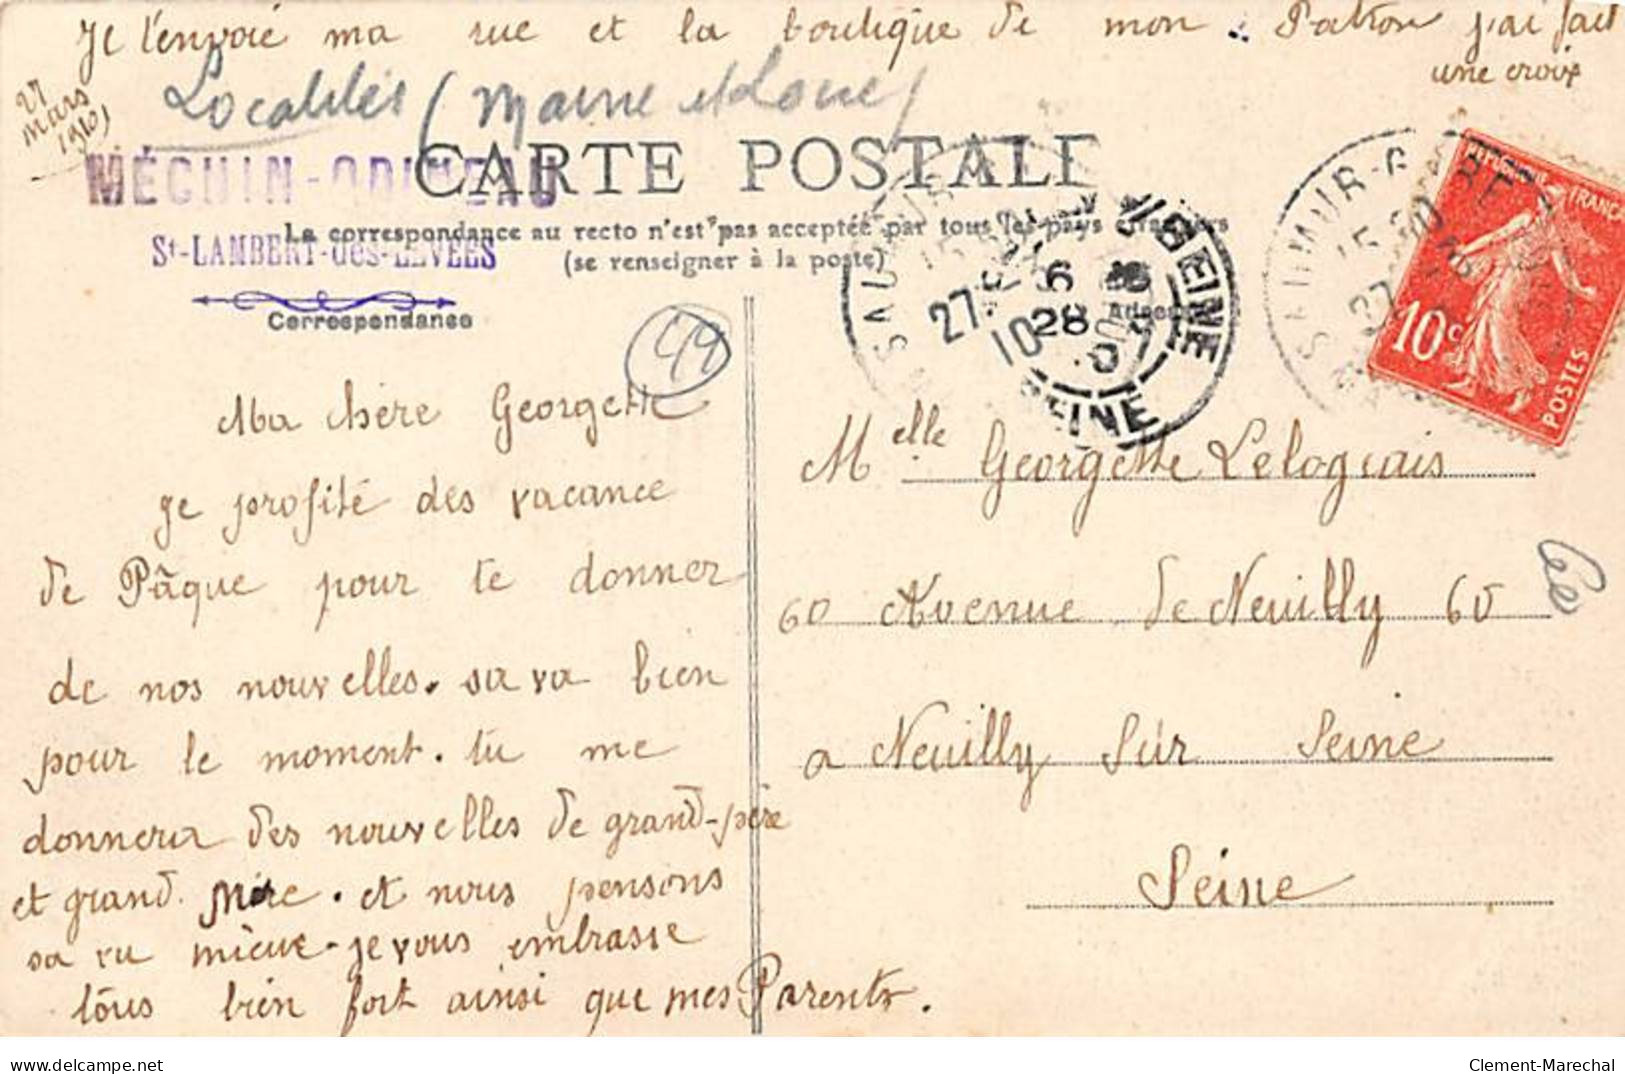 Je t'envoie ma rue et la boutique de mon Patron j'ai fait
une croix
27
mars
1910
Localités (Maine et Loire)
MÉCHIN-ODINEAU
CARTE POSTALE
La correspondance au recto n'est pas acceptée par tous les pays étrangers
St-LAMBERT-des-LEVÉES
(se renseigner à la poste)
Correspondance
49
Adresse
SAUMUR-GARE
15 30
27
10
6
28
SEINE
SEINE
RÉPUBLIQUE FRANÇAISE
10c
POSTES
Ma chère Georgette
je profité des vacance
de Pâque pour te donner
de nos nouvelles. sa va bien
pour le moment. tu me
donnera des nouvelles de grand-père
et grand. Mère. et nous pensons
sa va mieux - je vous embrasse
tous bien fort ainsi que mes Parents.
Melle Georgette Lelogeais
60 Avenue de Neuilly 60
a Neuilly sur Seine
Seine
www.delcampe.net
Clement-Marechal